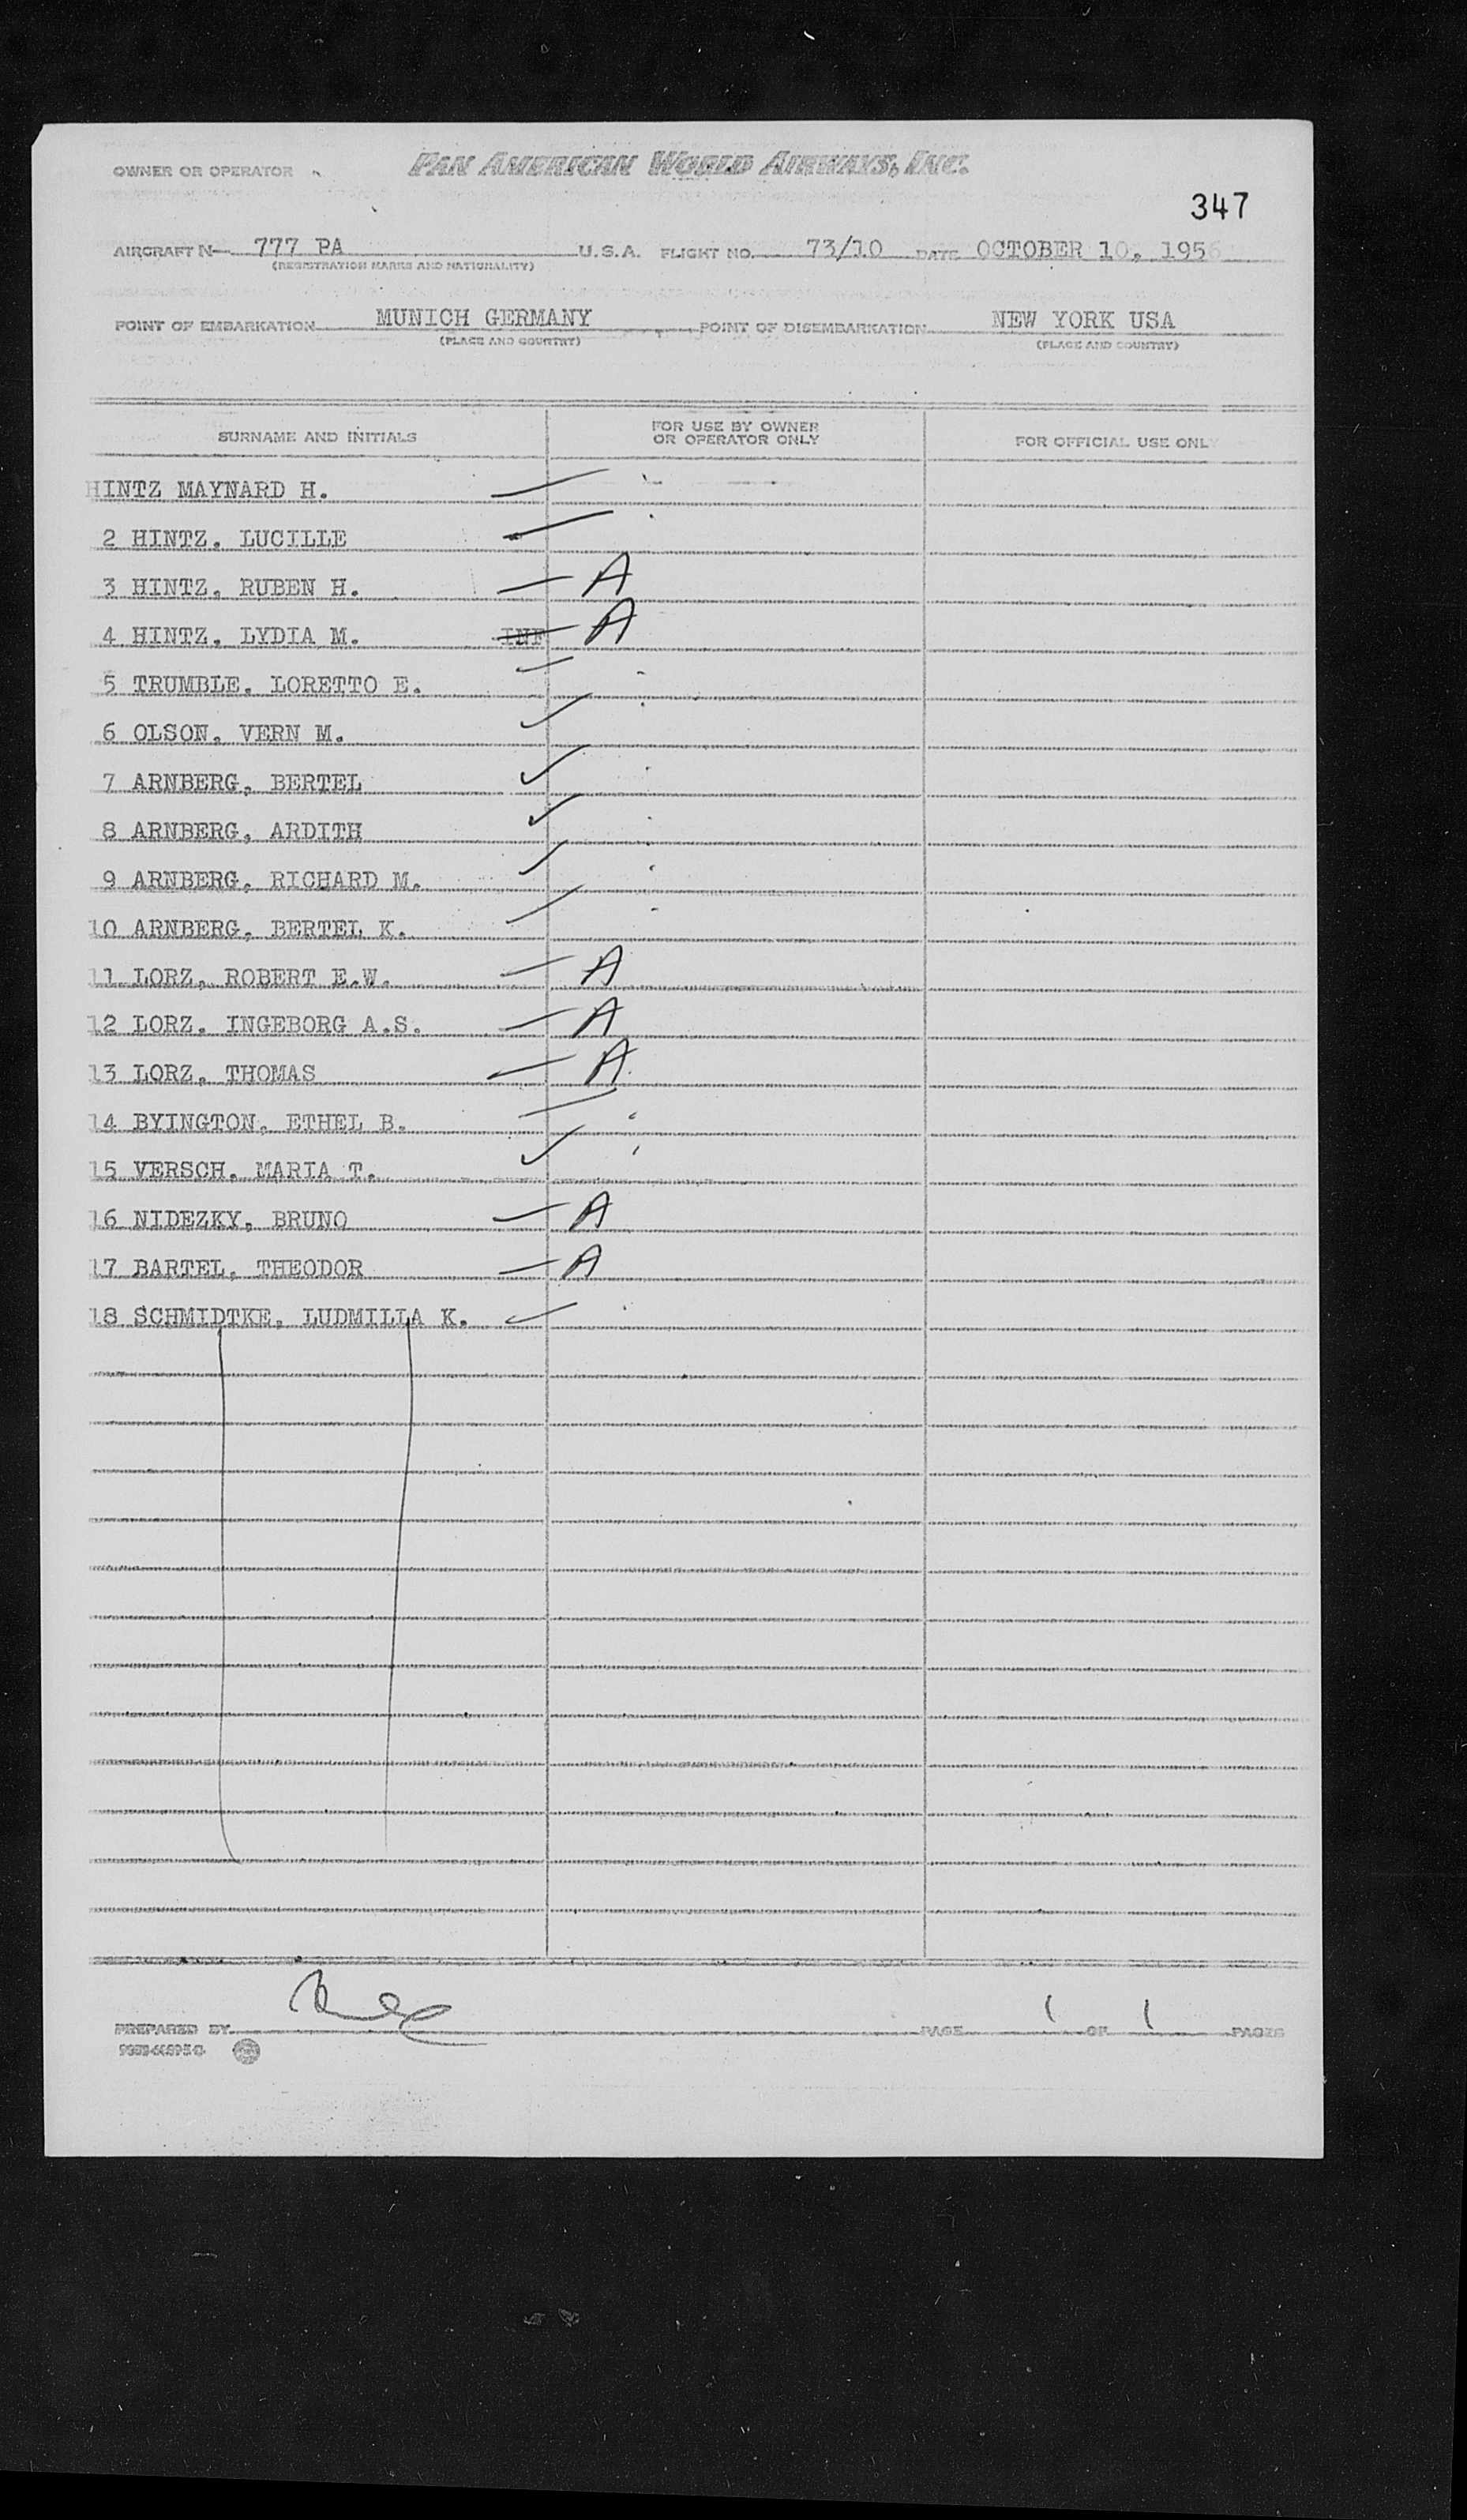 OWNER OR OPERATOR PAN AMERICAN WORLD AIRWAYS, INC.
347
AIRCRAFT N— 777 PA U.S.A. FLIGHT NO. 73/10 DATE OCTOBER 10, 1956
(REGISTRATION MARKS AND NATIONALITY)
POINT OF EMBARKATION MUNICH GERMANY POINT OF DISEMBARKATION NEW YORK USA
(PLACE AND COUNTRY) (PLACE AND COUNTRY)
SURNAME AND INITIALS FOR USE BY OWNER OR OPERATOR ONLY FOR OFFICIAL USE ONLY
HINTZ MAYNARD H.
2 HINTZ, LUCILLE
3 HINTZ, RUBEN H. A
4 HINTZ, LYDIA M. INF A
5 TRUMBLE, LORETTO E.
6 OLSON, VERN M.
7 ARNBERG, BERTEL
8 ARNBERG, ARDITH
9 ARNBERG, RICHARD M.
10 ARNBERG, BERTEL K.
11 LORZ, ROBERT E.W. A
12 LORZ, INGEBORG A.S. A
13 LORZ, THOMAS A
14 BYINGTON, ETHEL B.
15 VERSCH, MARIA T.
16 NIDEZKY, BRUNO A
17 BARTEL, THEODOR A
18 SCHMIDTKE, LUDMILLA K.
PREPARED BY PAGE 1 OF 1 PAGES